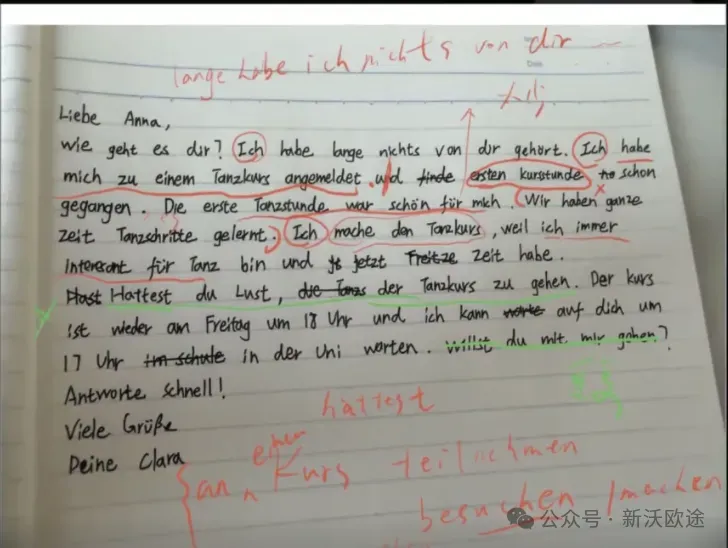 lange habe ich nichts von dir
Liebe Anna,
wie geht es dir? Ich habe lange nichts von dir gehört. Ich habe
mich zu einem Tanzkurs angemeldet und finde ersten kursstunde schon
gegangen. Die erste Tanzstunde war schön für mich. Wir haben ganze
zeit Tanzschritte gelernt. Ich mache den Tanzkurs, weil ich immer
interesant für Tanz bin und jetzt Freitze zeit habe.
Hast Hattest du Lust, die Tanz der Tanzkurs zu gehen. Der kurs
ist wieder am Freitag um 18 Uhr und ich kann warte auf dich um
17 Uhr im schule in der Uni warten. willst du mit mir gehen?
Antworte schnell!
hättest
Viele Grüße
Deine Clara
einem
an Kurs teilnehmen
besuchen / machen
公众号 · 新沃欧途